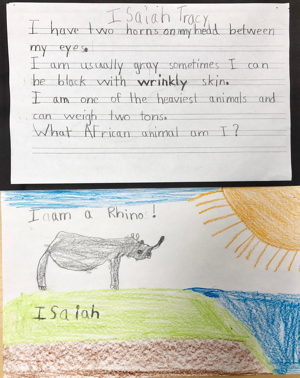 Isaiah Tracy
I have two horns on my head between
my eyes.
I am usually gray sometimes I can
be black with wrinkly skin.
I am one of the heaviest animals and
can weigh two tons.
What African animal am I?
I am a Rhino!
Isaiah